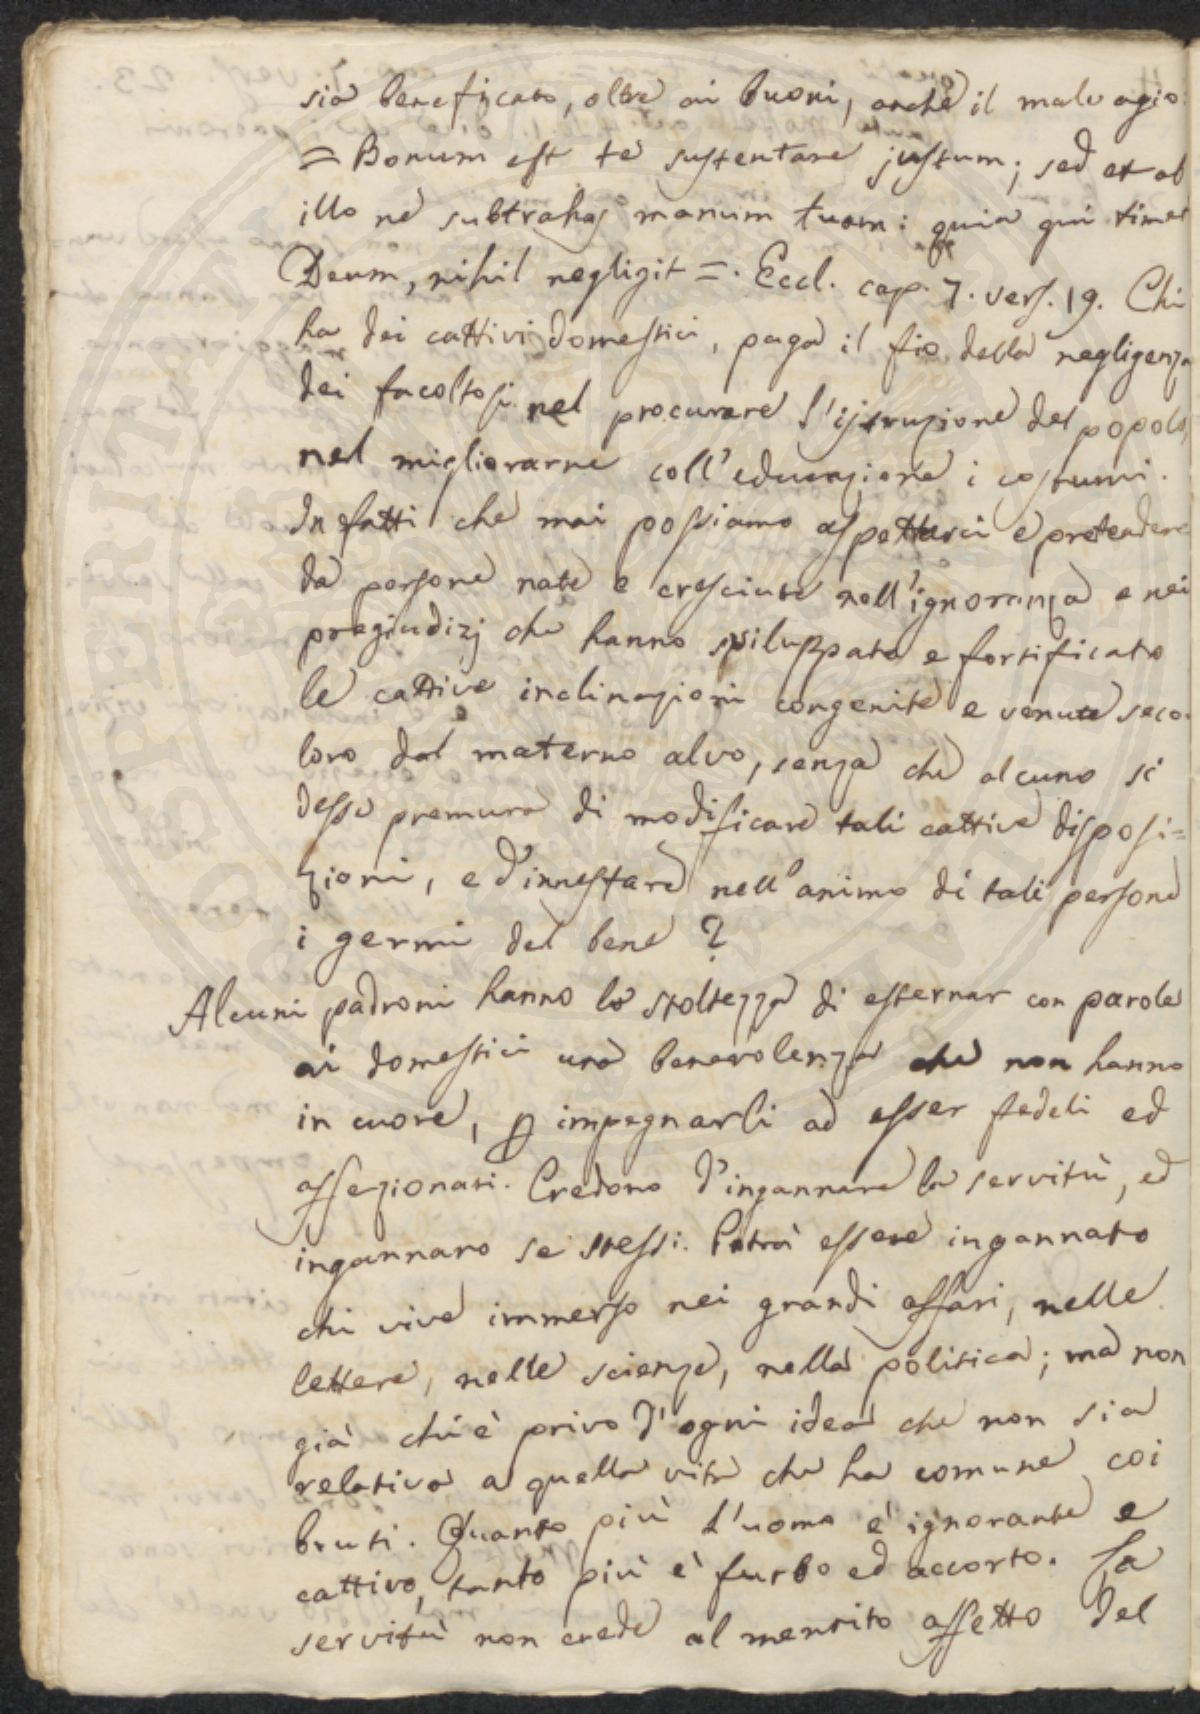 sia beneficato, oltre ai buoni, anche il malvagio:
= Bonum est te sustentare justum; sed et ab
illo ne subtrahas manum tuam: quia qui timet
Deum, nihil negligit =. Eccl. cap. 7. vers. 19. Chi
ha dei cattivi domestici, paga il fio della negligenza
dei facoltosi nel procurare l'istruzione del popolo,
nel migliorarne coll'educazione i costumi.
Infatti che mai possiamo aspettarci e pretendere
da persone nate e cresciute nell'ignoranza e nei
pregiudizj che hanno sviluppato e fortificato
le cattive inclinazioni congenite e venute seco
loro dal materno alvo, senza che alcuno si
desse premura di modificare tali cattive disposi=
zioni, e d'innestare nell'animo di tali persone
i germi del bene?
Alcuni padroni hanno la stoltezza di esternar con parole
ai domestici una benevolenza che non hanno
in cuore, p impegnarli ad esser fedeli ed
affezionati. Credono d'ingannare la servitù, ed
ingannano se stessi. Potrà essere ingannato
chi vive immerso nei grandi affari, nelle
lettere, nelle scienze, nella politica; ma non
già chi è privo d'ogni idea che non sia
relativa a quella vita che ha comune coi
bruti. Quanto più l'uomo è ignorante e
cattivo, tanto più è furbo ed accorto. La
servitù non crede al mentito affetto del